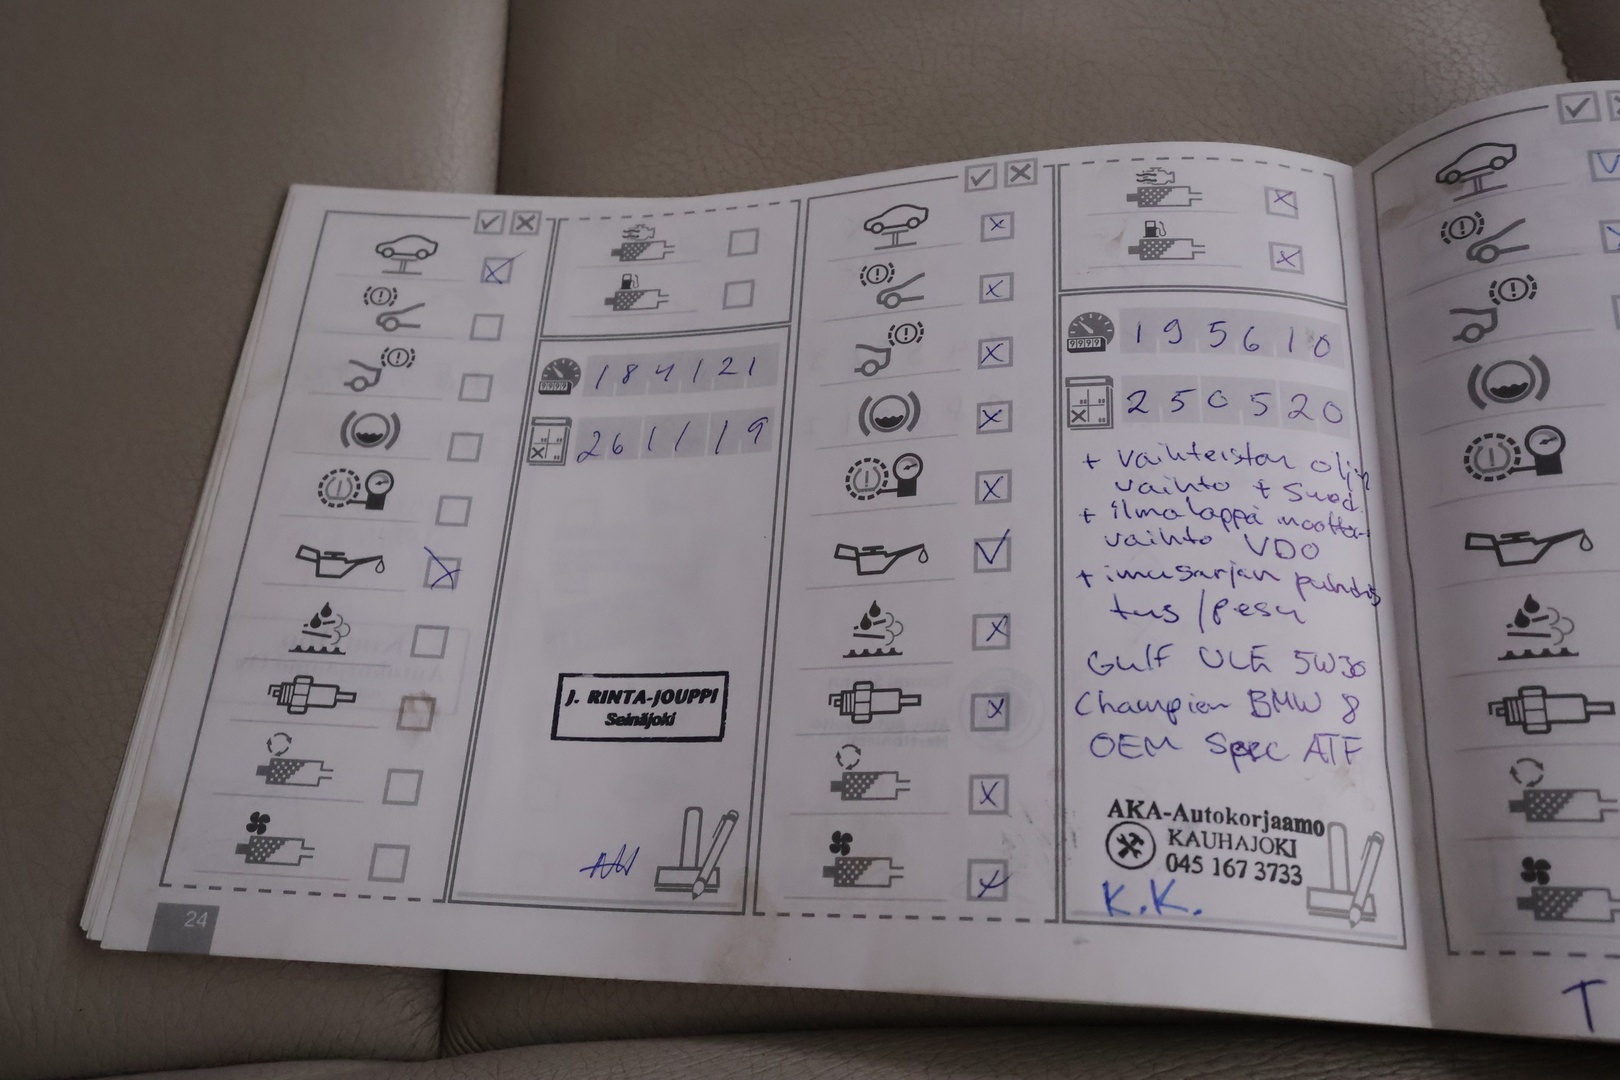 184121
261119
J. RINTA-JOUPPI
Seinäjoki
24
195610
250520
+ vaihteiston öljyn
vaihto + suod.
+ ilmaläppä moottori
vaihto VDO
+ imusarjan puhdis
tus / pesu
Gulf ULE 5W30
Champion BMW 8
OEM Spec ATF
AKA-Autokorjaamo
KAUHAJOKI
045 167 3733
K.K.
T